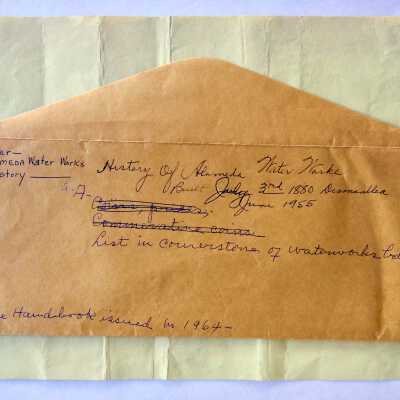 MEDA Water Works
story
History Of Alameda Water Works
Built July 3rd 1880 Dismantled
A- June 1955
Commemorative coins
List in cornerstone of waterworks
Handbook issued in 1964-